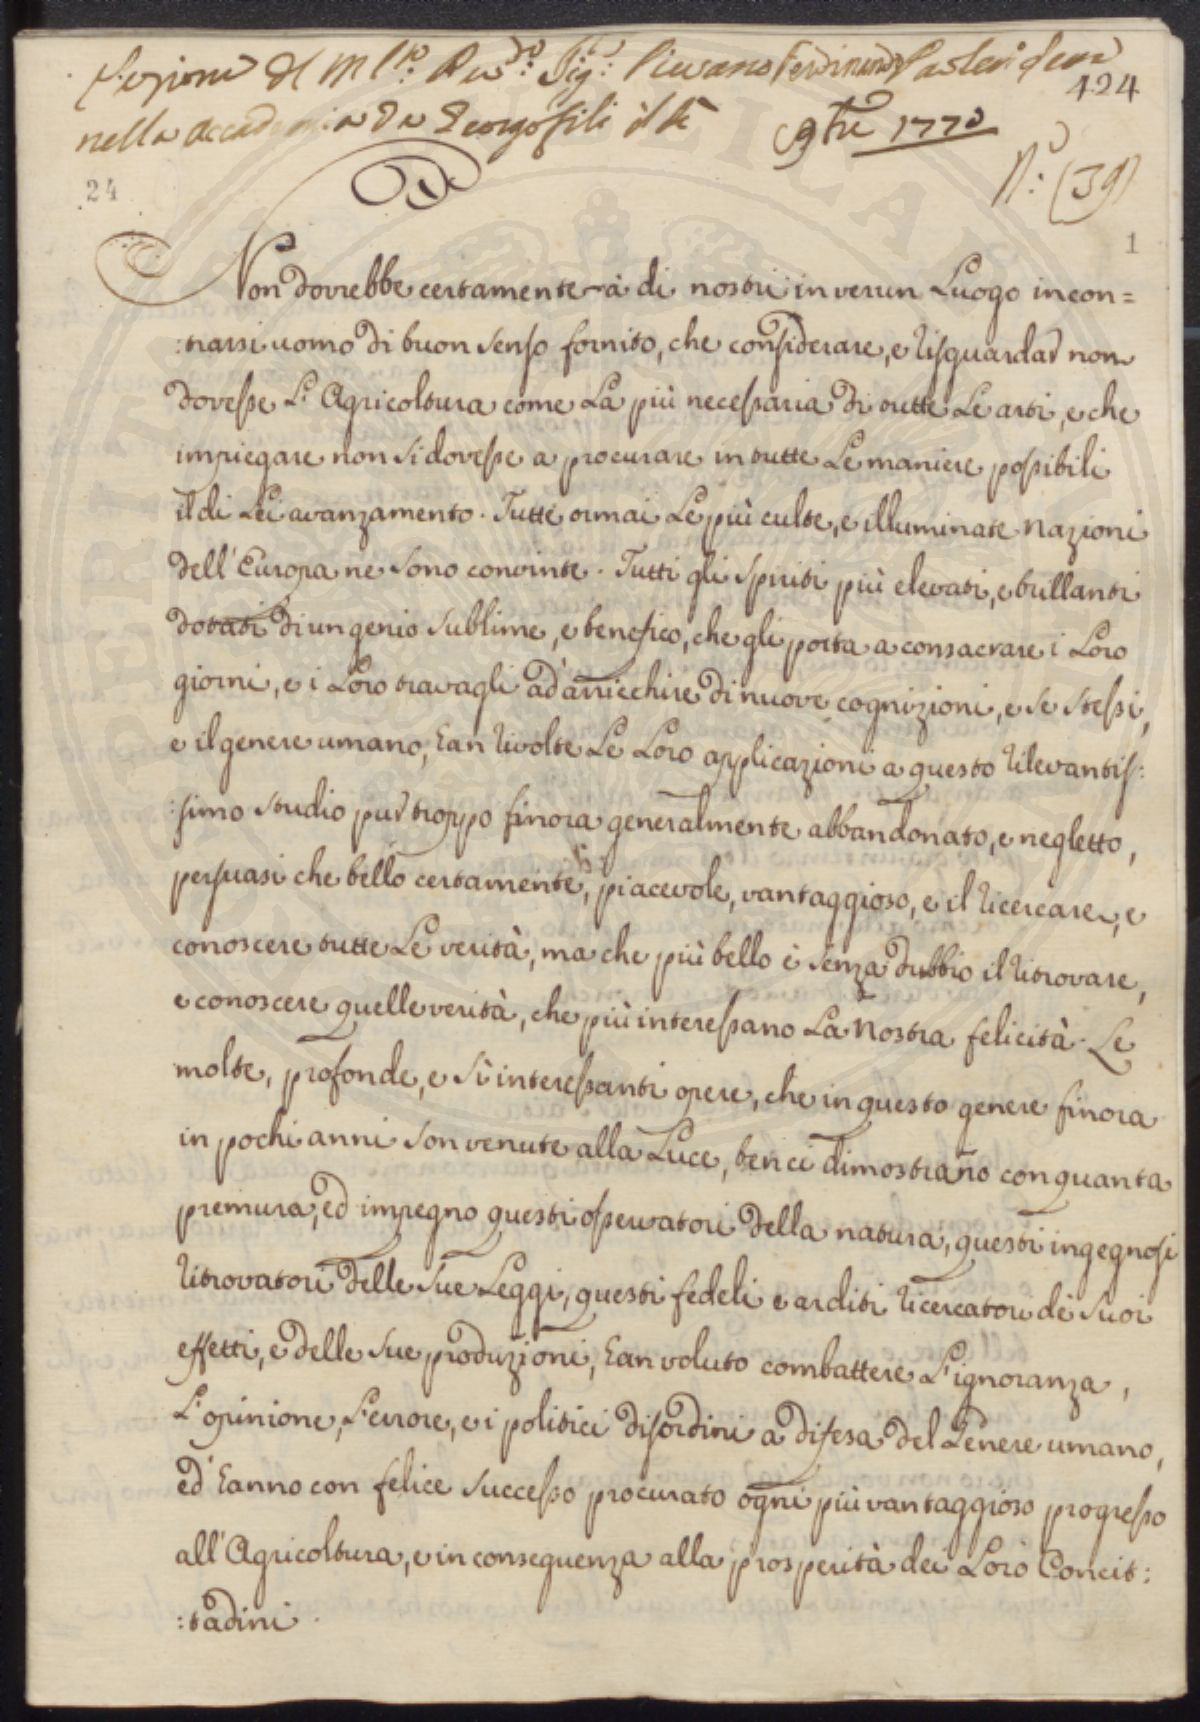 Lezione del M.to Rev.do Sig.r Pievano Ferdinando
nella Accademia de Georgofili il dì 9bre 1770
424
24
N.o (39)
1
Non dovrebbe certamente a di nostri in verun Luogo incon=
:trarsi uomo di buon senso fornito, che considerare, e risguardar non
dovesse L'Agricoltura come La più necessaria di tutte Le arti, e che
impiegare non si dovesse a procurare in tutte Le maniere possibili
il di Lei avanzamento. Tutte ormai Le più culte, e illuminate Nazioni
dell'Europa ne sono convinte. Tutti gli spiriti più elevati, e brillanti
dotati di un genio sublime, e benefico, che gli porta a consacrare i Loro
giorni, e i Loro travagli ad arricchire di nuove cognizioni, e se stessi,
e il genere umano, han rivolte Le Loro applicazioni a questo rilevantis:
:simo studio pur troppo finora generalmente abbandonato, e negletto,
persuasi che bello certamente, piacevole, vantaggioso, e il ricercare, e
conoscere tutte Le verità, ma che più bello è senza dubbio il ritrovare,
e conoscere quelle verità, che più interessano La Nostra felicità. Le
molte, profonde, e sì interessanti opere, che in questo genere finora
in pochi anni son venute alla Luce, ben ci dimostrano con quanta
premura, ed impegno questi osservatori della natura, questi ingegnosi
ritrovatori delle sue Leggi, questi fedeli e arditi ricercatori de suoi
effetti, e delle sue produzioni, han voluto combattere L'ignoranza,
L'opinione, L'errore, e i politici disordini a difesa del Genere umano,
ed hanno con felice successo procurato ogni più vantaggioso progresso
all'Agricoltura, e in conseguenza alla prosperità dei Loro Concit:
:tadini.